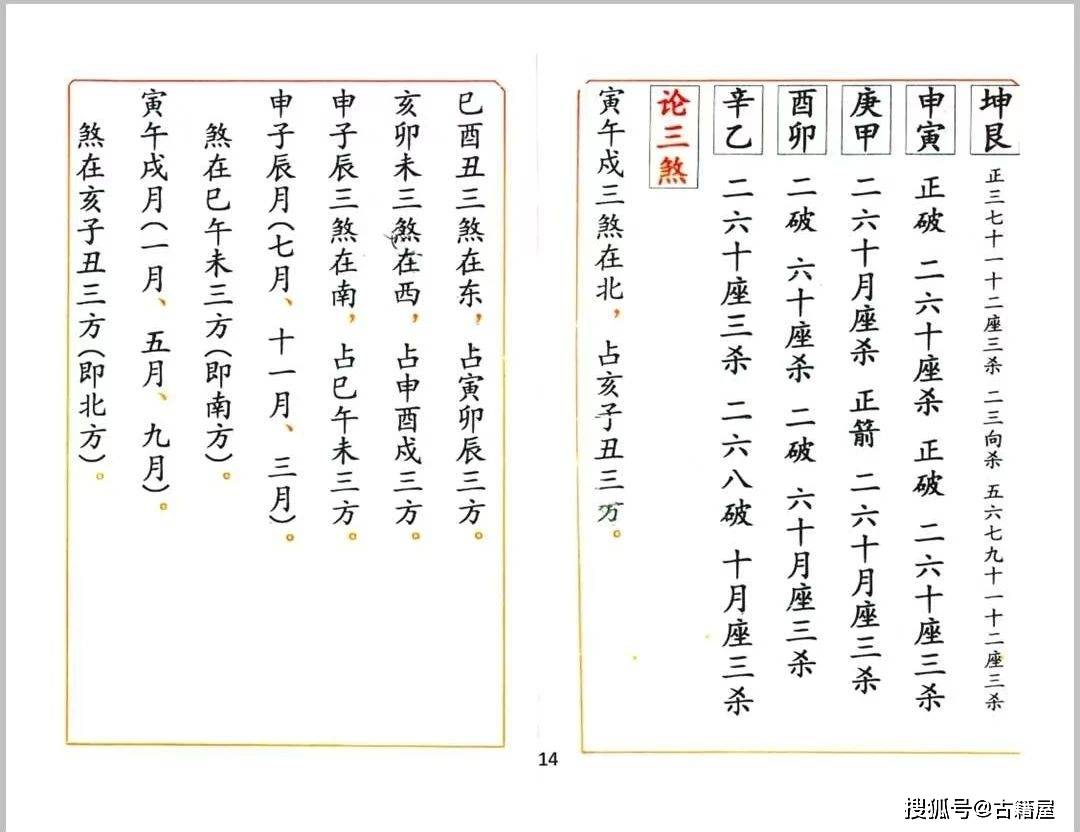 坤艮 正三七十一十二座三杀 二三向杀 五六七九十一十二座三杀
申寅 正破 二六十座杀 正破 二六十座三杀
庚甲 二六十月座杀 正箭 二六十月座三杀
酉卯 二破 六十座杀 二破 六十月座三杀
辛乙 二六十座三杀 二六八破 十月座三杀
论三煞
寅午戍三煞在北，占亥子丑三方。
巳酉丑三煞在东，占寅卯辰三方。
亥卯未三煞在西，占申酉戍三方。
申子辰三煞在南，占巳午未三方。
申子辰月(七月、十一月、三月)。
煞在巳午未三方(即南方)。
寅午戍月(一月、五月、九月)。
煞在亥子丑三方(即北方)。
14
搜狐号@古籍屋